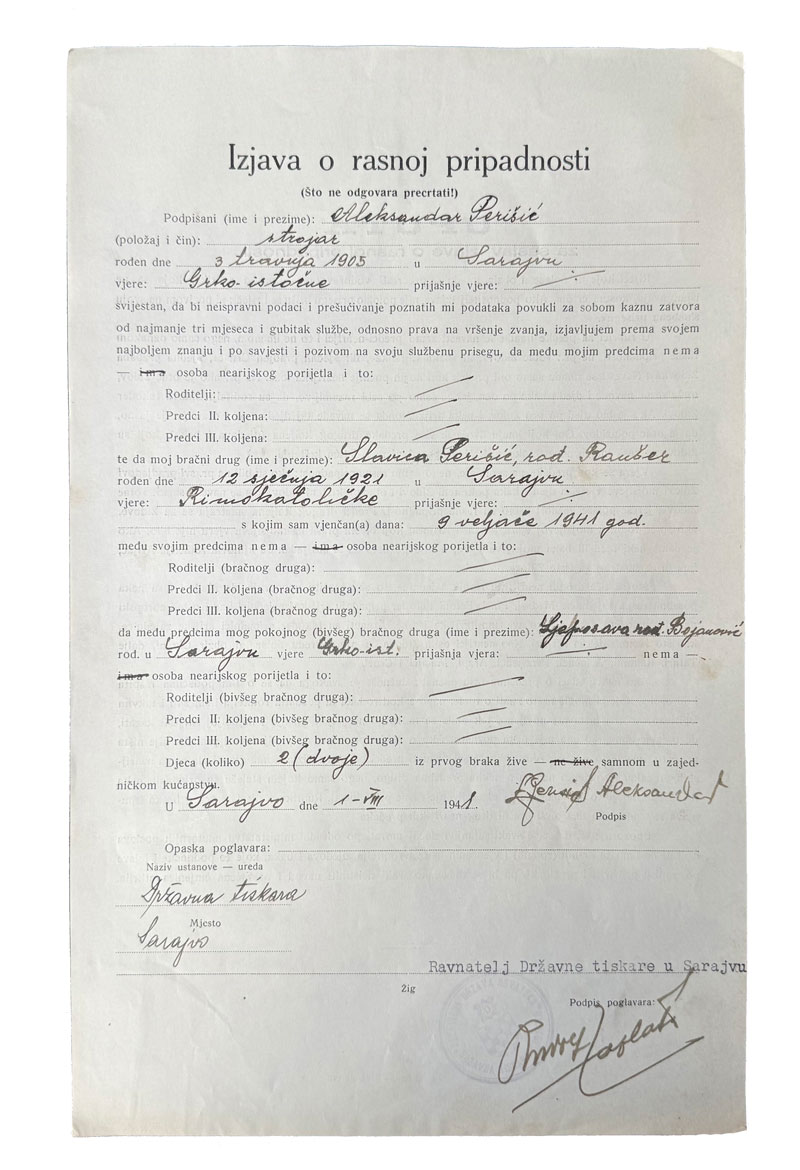 Izjava o rasnoj pripadnosti
(Što ne odgovara precrtati!)
Podpisani (ime i prezime): Aleksandar Perišić
(položaj i čin): strojar
rođen dne 3 travnja 1905 u Sarajvu
vjere: Grko-istočne prijašnje vjere: ÷
svijestan, da bi neispravni podaci i prešućivanje poznatih mi podataka povukli za sobom kaznu zatvora
od najmanje tri mjeseca i gubitak službe, odnosno prava na vršenje zvanja, izjavljujem prema svojem
najboljem znanju i po savjesti i pozivom na svoju službenu prisegu, da među mojim predcima nema
— ima osoba nearijskog porijetla i to:
Roditelji:
Predci II. koljena:
Predci III. koljena:
te da moj bračni drug (ime i prezime): Slavica Perišić, rođ. Raušer
rođen dne 12 sječnja 1921 u Sarajvu
vjere: Rimokatoličke prijašnje vjere: ÷
s kojim sam vjenčan(a) dana: 9 veljače 1941 god.
među svojim predcima nema — ima osoba nearijskog porijetla i to:
Roditelji (bračnog druga):
Predci II. koljena (bračnog druga):
Predci III. koljena (bračnog druga):
da među predcima mog pokojnog (bivšeg) bračnog druga (ime i prezime): Ljeposava rođ. Bojanović
rod. u Sarajvu vjere Grko-ist. prijašnja vjera: ÷ nema —
ima osoba nearijskog porijetla i to:
Roditelji (bivšeg bračnog druga):
Predci II. koljena (bivšeg bračnog druga):
Predci III. koljena (bivšeg bračnog druga):
Djeca (koliko) 2 (dvoje) iz prvog braka žive — ne žive samnom u zajed-
ničkom kućanstvu.
U Sarajvo dne 1-VIII 1941. Perišić Aleksandar
Podpis
Opaska poglavara:
Naziv ustanove — ureda
Državna tiskara
Mjesto
Sarajvo
Ravnatelj Državne tiskare u Sarajvu
Žig
Podpis poglavara: